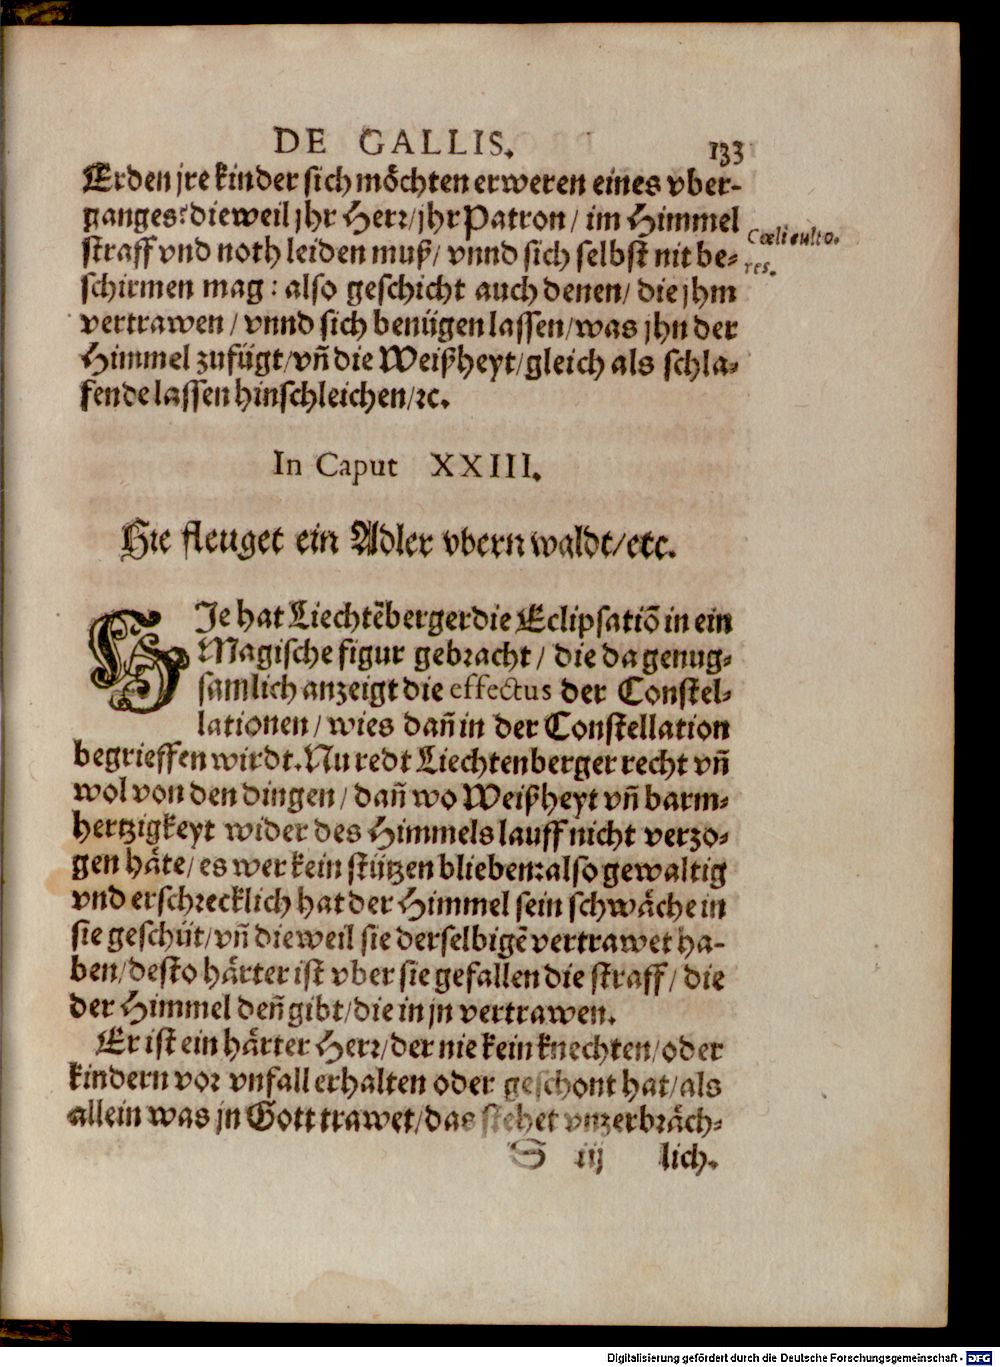 DE GALLIS. 133
Erden jre kinder sich möchten erweren eines vber-
ganges? dieweil jhr Herr/ jhr Patron/ im Himmel
straff vnd noth leiden muß/ vnnd sich selbst nit be-
Cœli cultores.
schirmen mag: also geschicht auch denen/ die jhm
vertrawen/ vnnd sich benügen lassen/ was jhn der
Himmel zufügt/ vñ die Weißheyt/ gleich als schla-
fende lassen hinschleichen/ ꝛc.
In Caput XXIII.
Hie fleuget ein Adler vbern waldt/ etc.
HJe hat Liechtẽberger die Eclipsatiõ in ein
Magische figur gebracht/ die da genug-
samlich anzeigt die effectus der Constel-
lationen/ wies dañ in der Constellation
begrieffen wirdt. Nu redt Liechtenberger recht vñ
wol von den dingen/ dañ wo Weißheyt vñ barm-
hertzigkeyt wider des Himmels lauff nicht verzo-
gen häte/ es wer kein stützen blieben: also gewaltig
vnd erschrecklich hat der Himmel sein schwäche in
sie geschüt/ vñ dieweil sie derselbigẽ vertrawet ha-
ben/ desto härter ist vber sie gefallen die straff/ die
der Himmel deñ gibt/ die in jn vertrawen.
Er ist ein härter Herr/ der nie kein knechten/ oder
kindern vor vnfall erhalten oder geschont hat/ als
allein was jn Gott trawet/ das stehet vnzerbräch-
S iij lich.
Digitalisierung gefördert durch die Deutsche Forschungsgemeinschaft - DFG